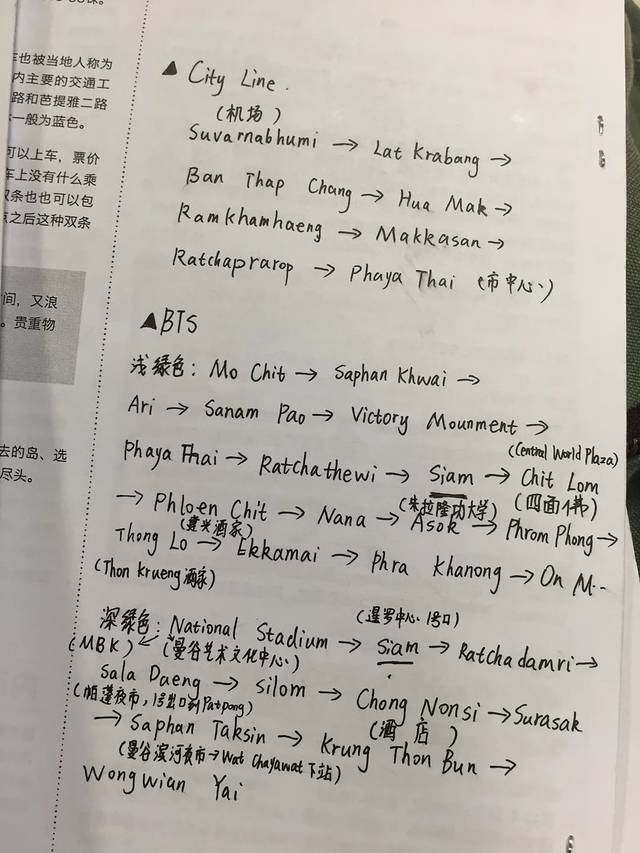 课。
车也被当地人称为
内主要的交通工
路和芭提雅二路
一般为蓝色。
可以上车，票价
车上没有什么乘
双条也也可以包
点之后这种双条
间，又浪
。贵重物
去的岛、选
尽头。
▲ City Line.
(机场)
Suvarnabhumi → Lat Krabang →
Ban Thap Chang → Hua Mak →
Ramkhamhaeng → Makkasan →
Ratchaprarop → Phaya Thai (市中心)
▲BTS
浅绿色: Mo Chit → Saphan Khwai →
Ari → Sanam Pao → Victory Mounment →
(Central World Plaza)
Phaya Thai → Ratchathewi → Siam → Chit Lom
(朱拉隆功大学) (四面佛)
→ Phloen Chit → Nana → Asok → Phrom Phong →
(建兴酒家)
Thong Lo → Ekkamai → Phra Khanong → On M...
(Thon Krueng酒家)
(暹罗中心、1号口)
深绿色: National Stadium → Siam → Ratchadamri →
(MBK) (曼谷艺术文化中心)
Sala Daeng → Silom → Chong Nonsi → Surasak
(帕蓬夜市，1号出口到Patpong) (酒店)
→ Saphan Taksin → Krung Thon Bun →
(曼谷滨河夜市→Wat Chayawat下站)
Wongwian Yai